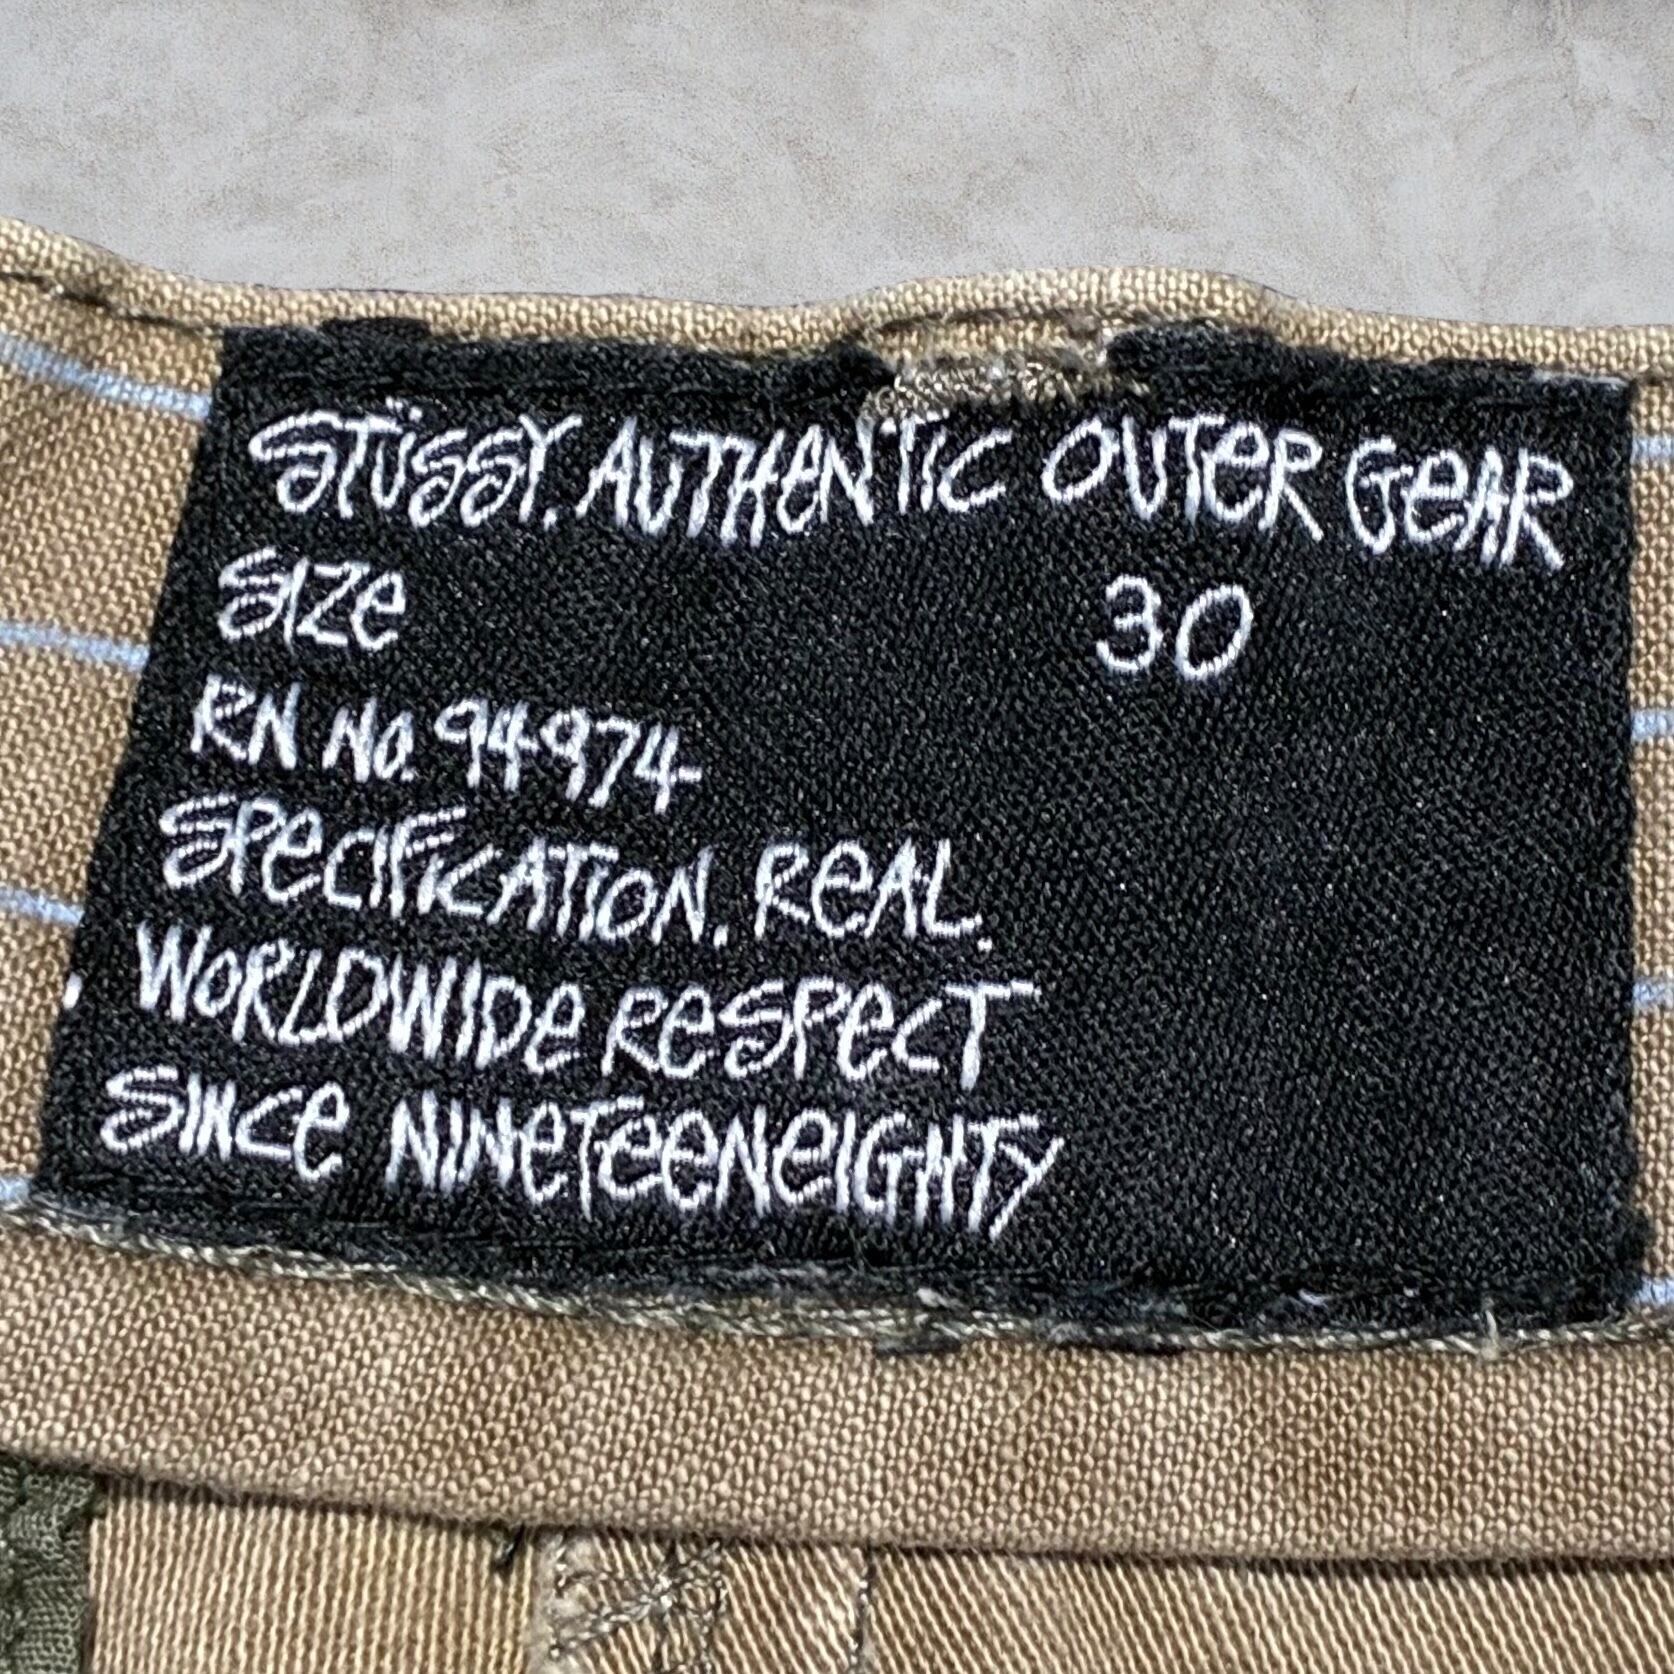 STÜSSY. AUTHENTIC OUTER GEAR
SIZE 30
RN No. 94974
SPECIFICATION. REAL.
WORLDWIDE RESPECT
SINCE NINETEENEIGHTY